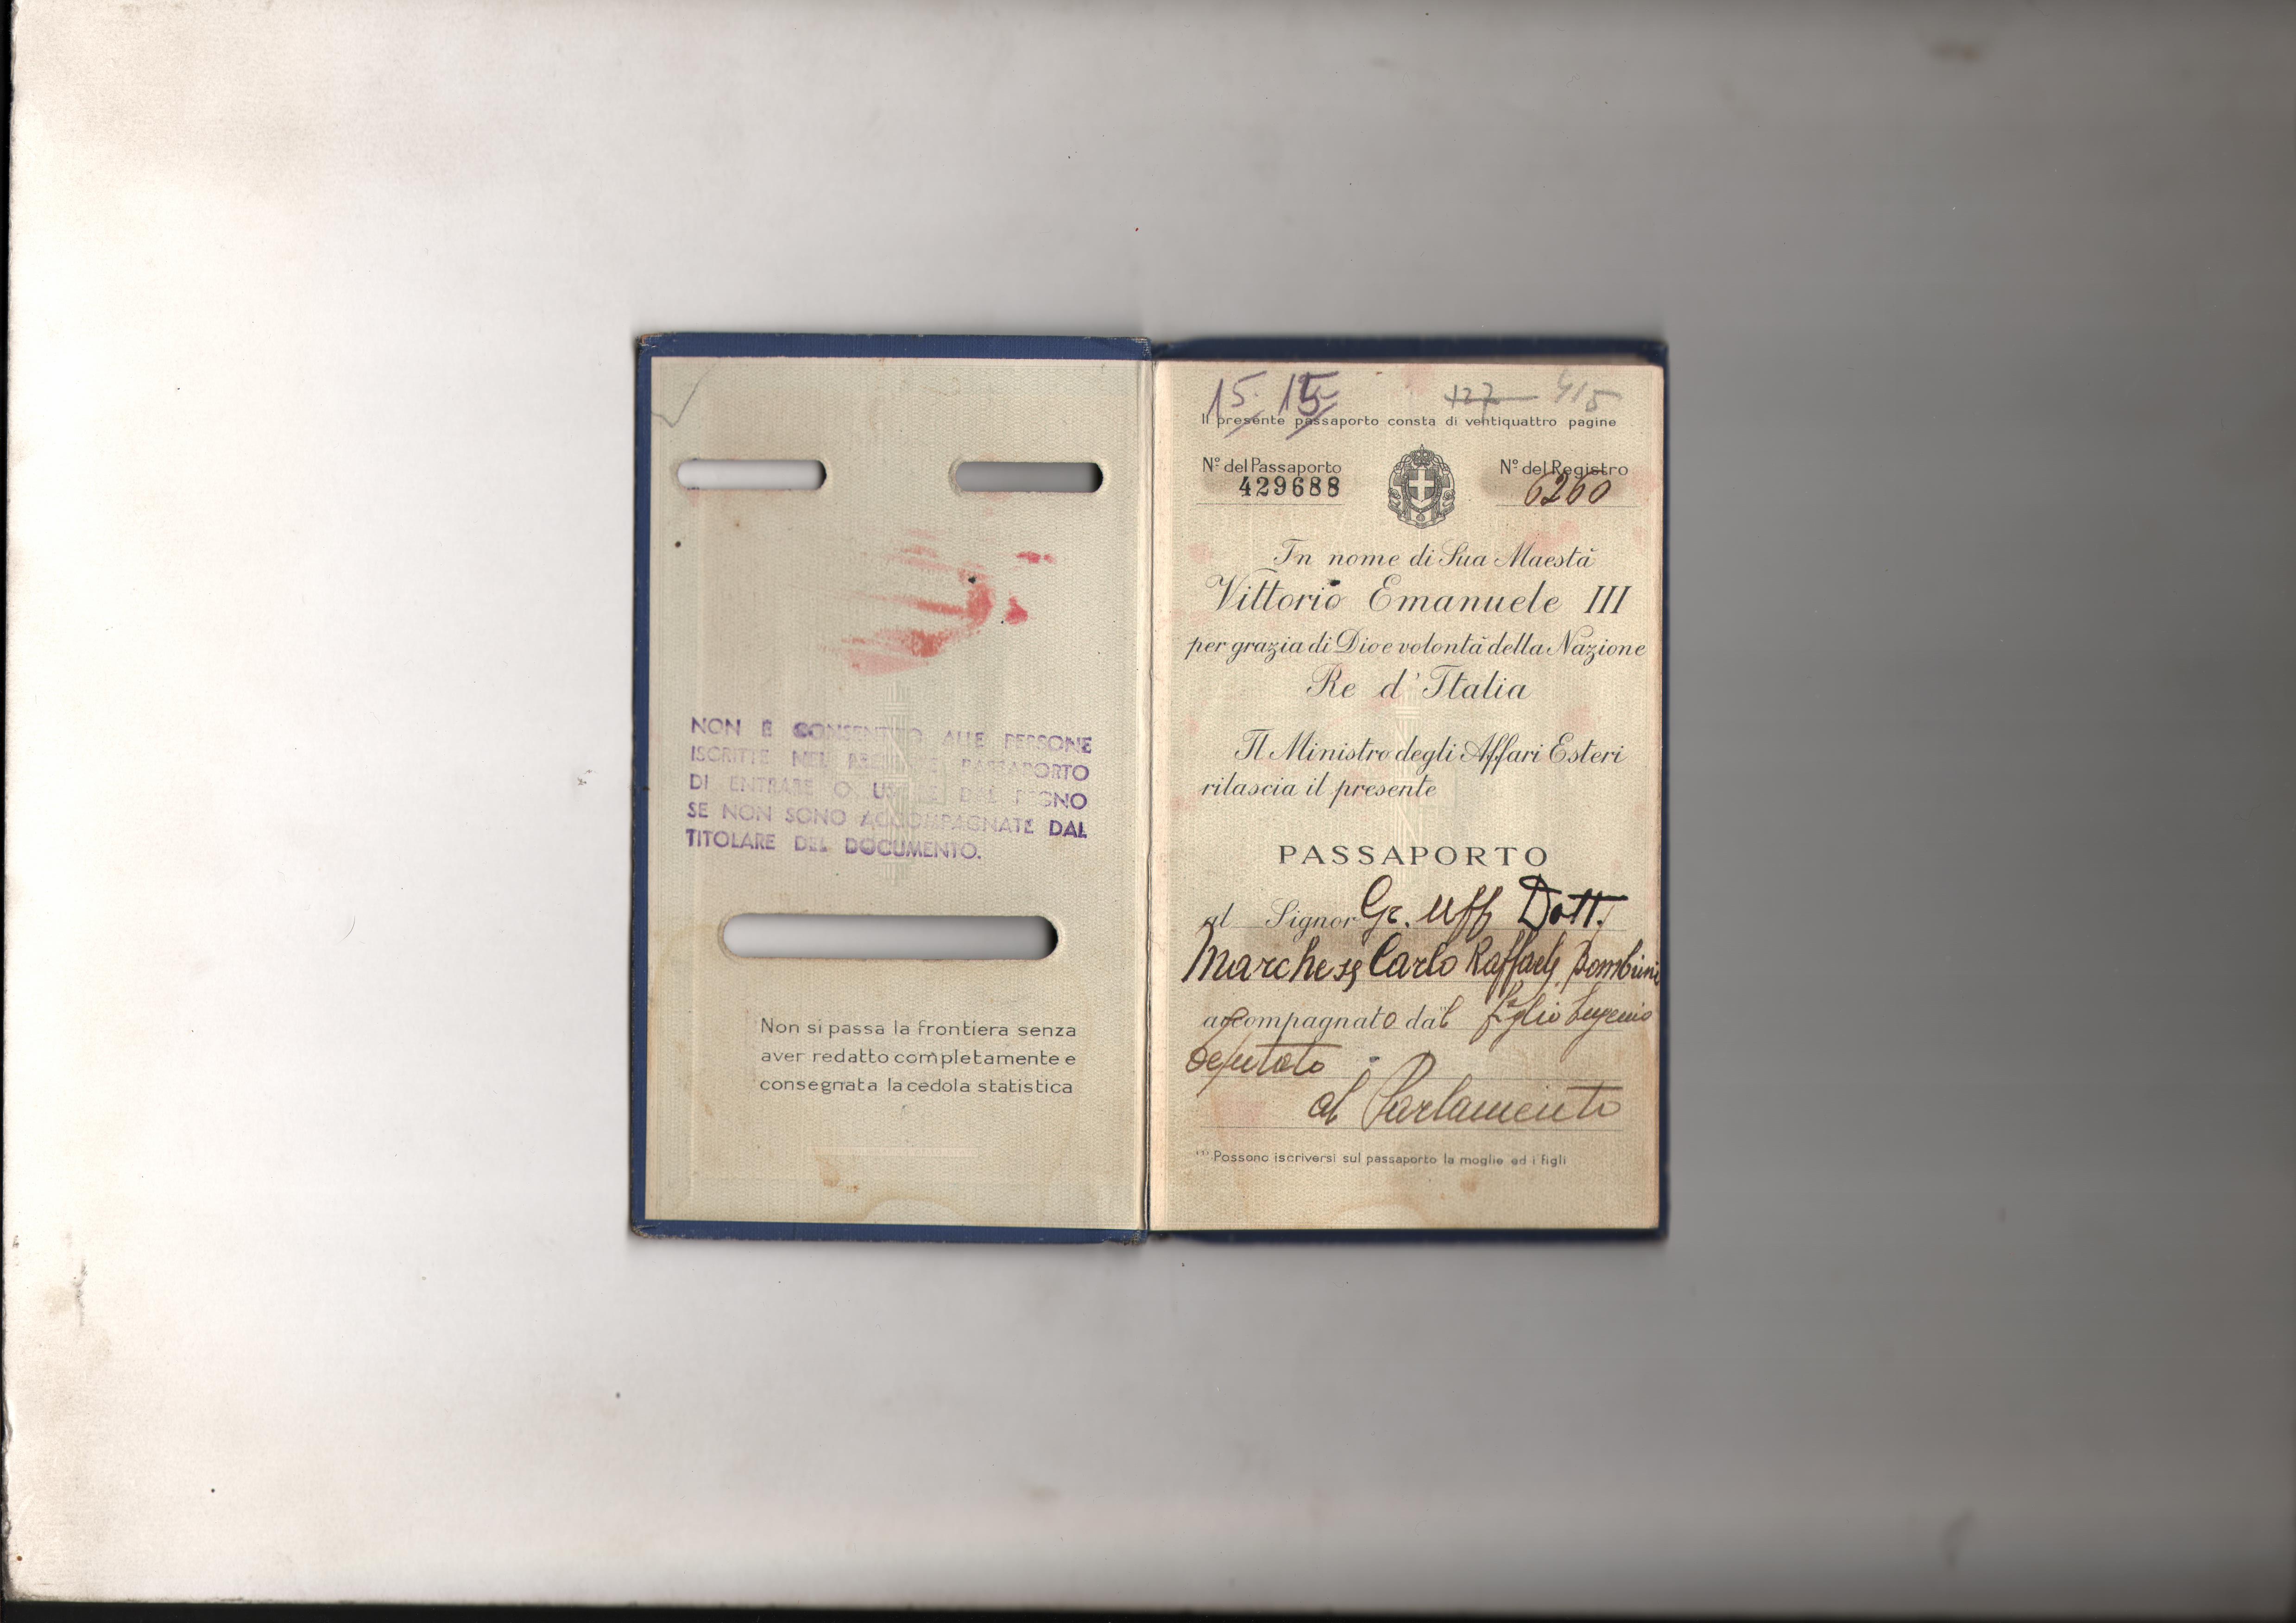 NON È CONSENTITO ALLE PERSONE
ISCRITTE NEL PRESENTE PASSAPORTO
DI ENTRARE O USCIRE DAL REGNO
SE NON SONO ACCOMPAGNATE DAL
TITOLARE DEL DOCUMENTO.
Non si passa la frontiera senza
aver redatto completamente e
consegnata la cedola statistica
15. 15 127 415
Il presente passaporto consta di ventiquattro pagine
N.º del Passaporto
429688
N.º del Registro
6260
In nome di Sua Maestà
Vittorio Emanuele III
per grazia di Dio e volontà della Nazione
Re d'Italia
Il Ministro degli Affari Esteri
rilascia il presente
PASSAPORTO
al Signor Gr. Uff Dott.
Marchese Carlo Raffaele Bombrini
accompagnato dal figlio Eugenio
deputato
al Parlamento
(1) Possono iscriversi sul passaporto la moglie ed i figli